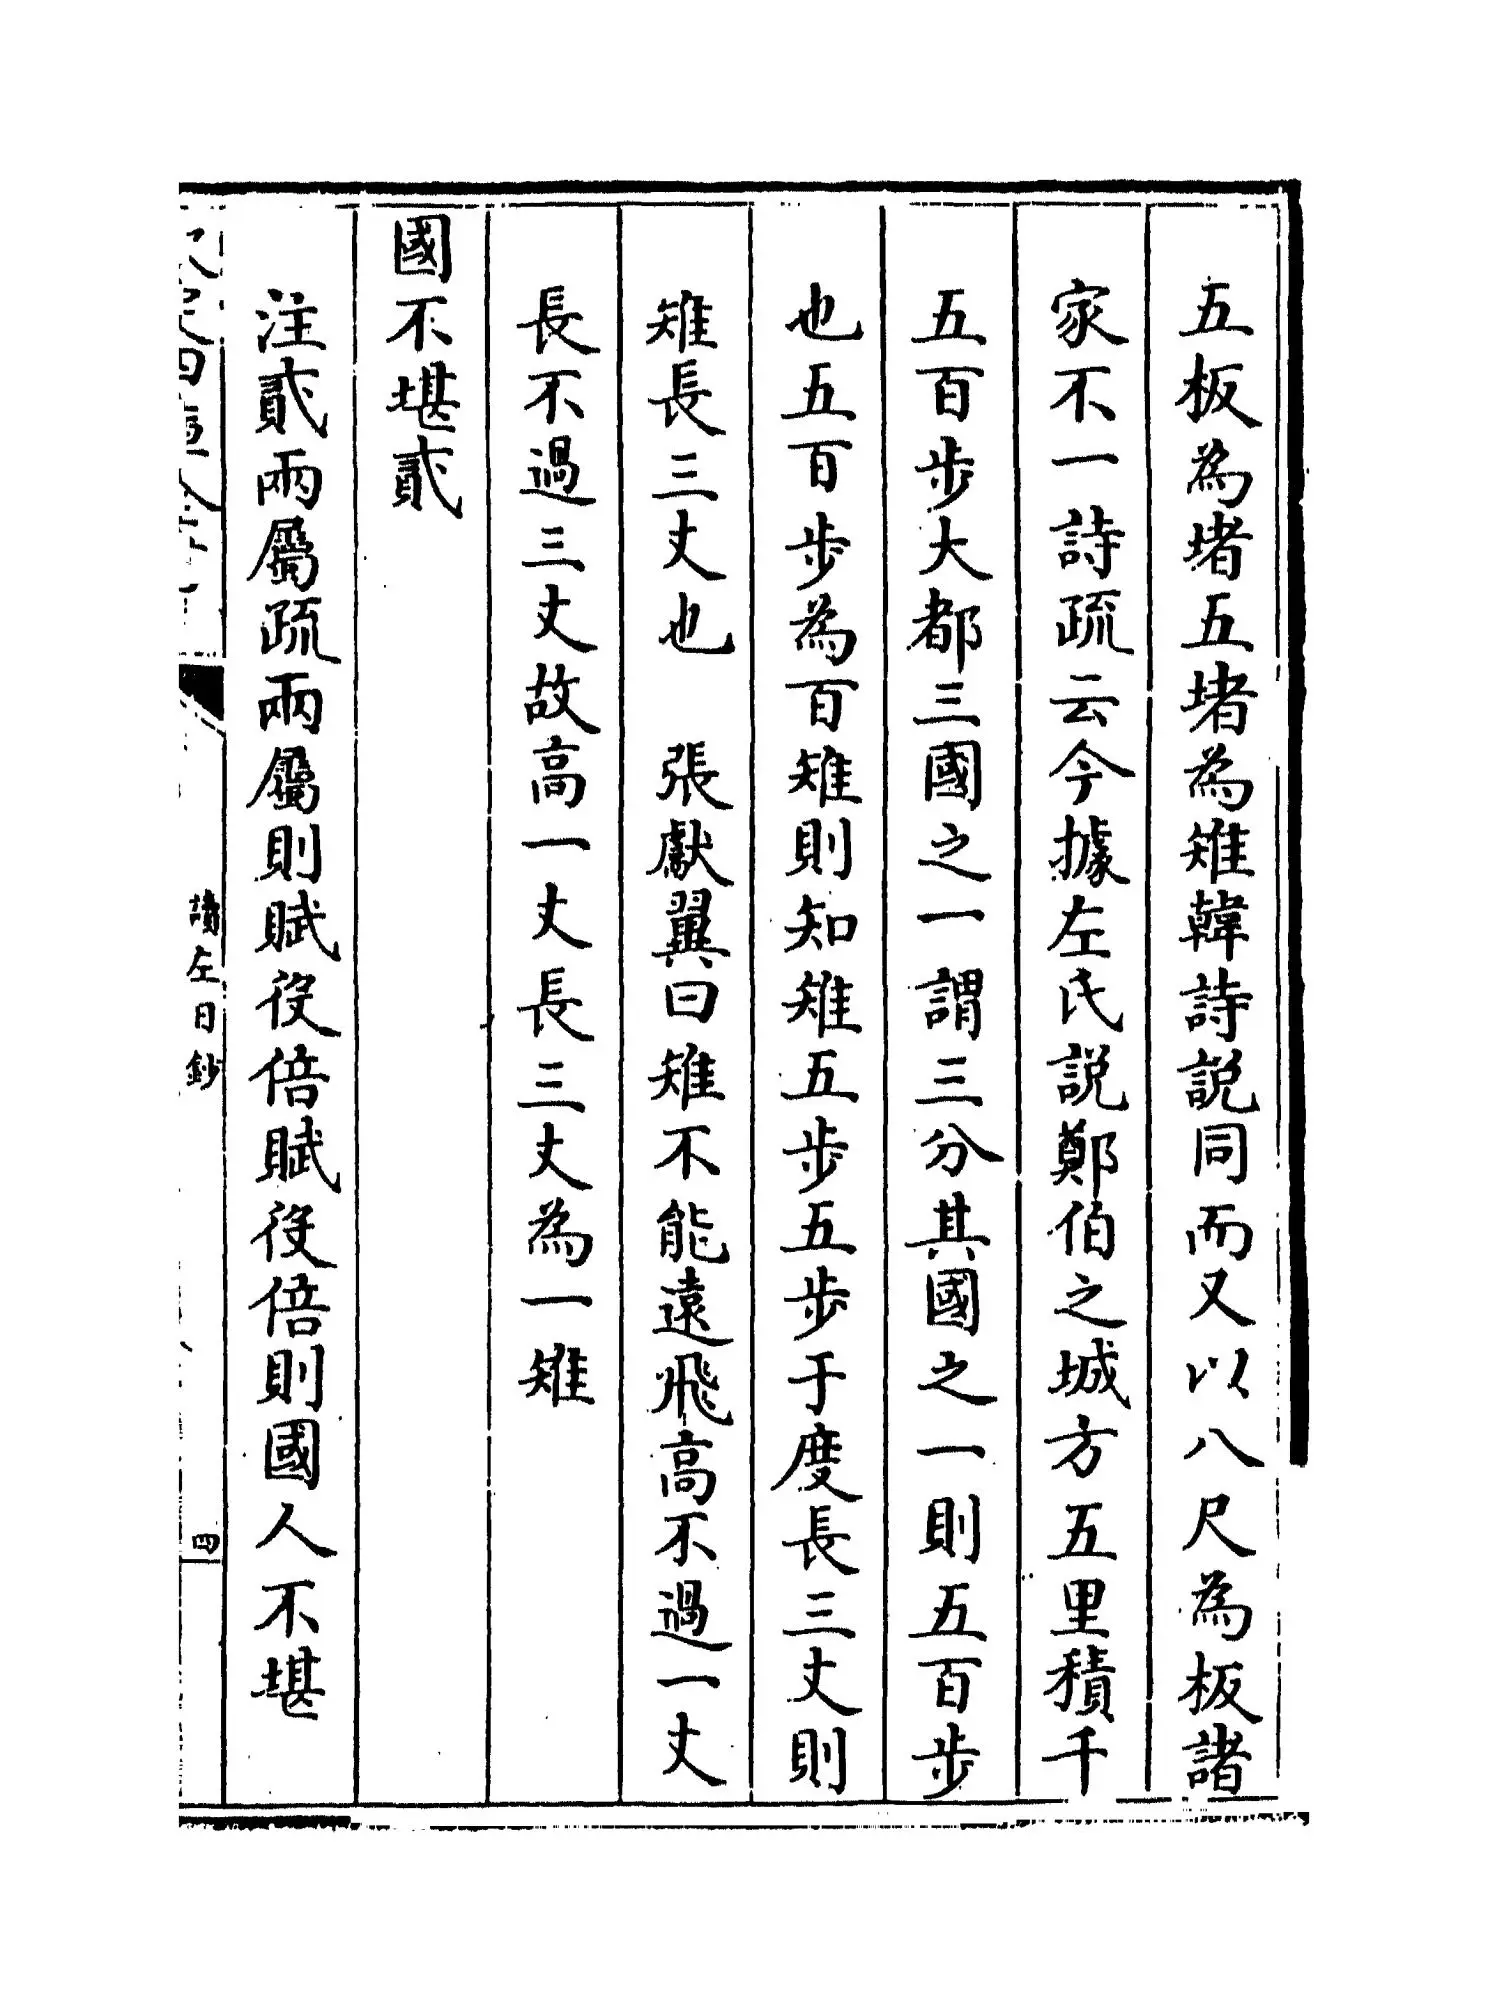 五板為堵五堵為雉韓詩説同而又以八尺為板諸
家不一詩疏云今據左氏説鄭伯之城方五里積千
五百步大都三國之一謂三分其國之一則五百步
也五百步為百雉則知雉五步五步于度長三丈則
雉長三丈也　張獻翼曰雉不能遠飛高不過一丈
長不過三丈故高一丈長三丈為一雉
國不堪貳
注貳兩屬疏兩屬則賦役倍賦役倍則國人不堪
讀左日鈔
四